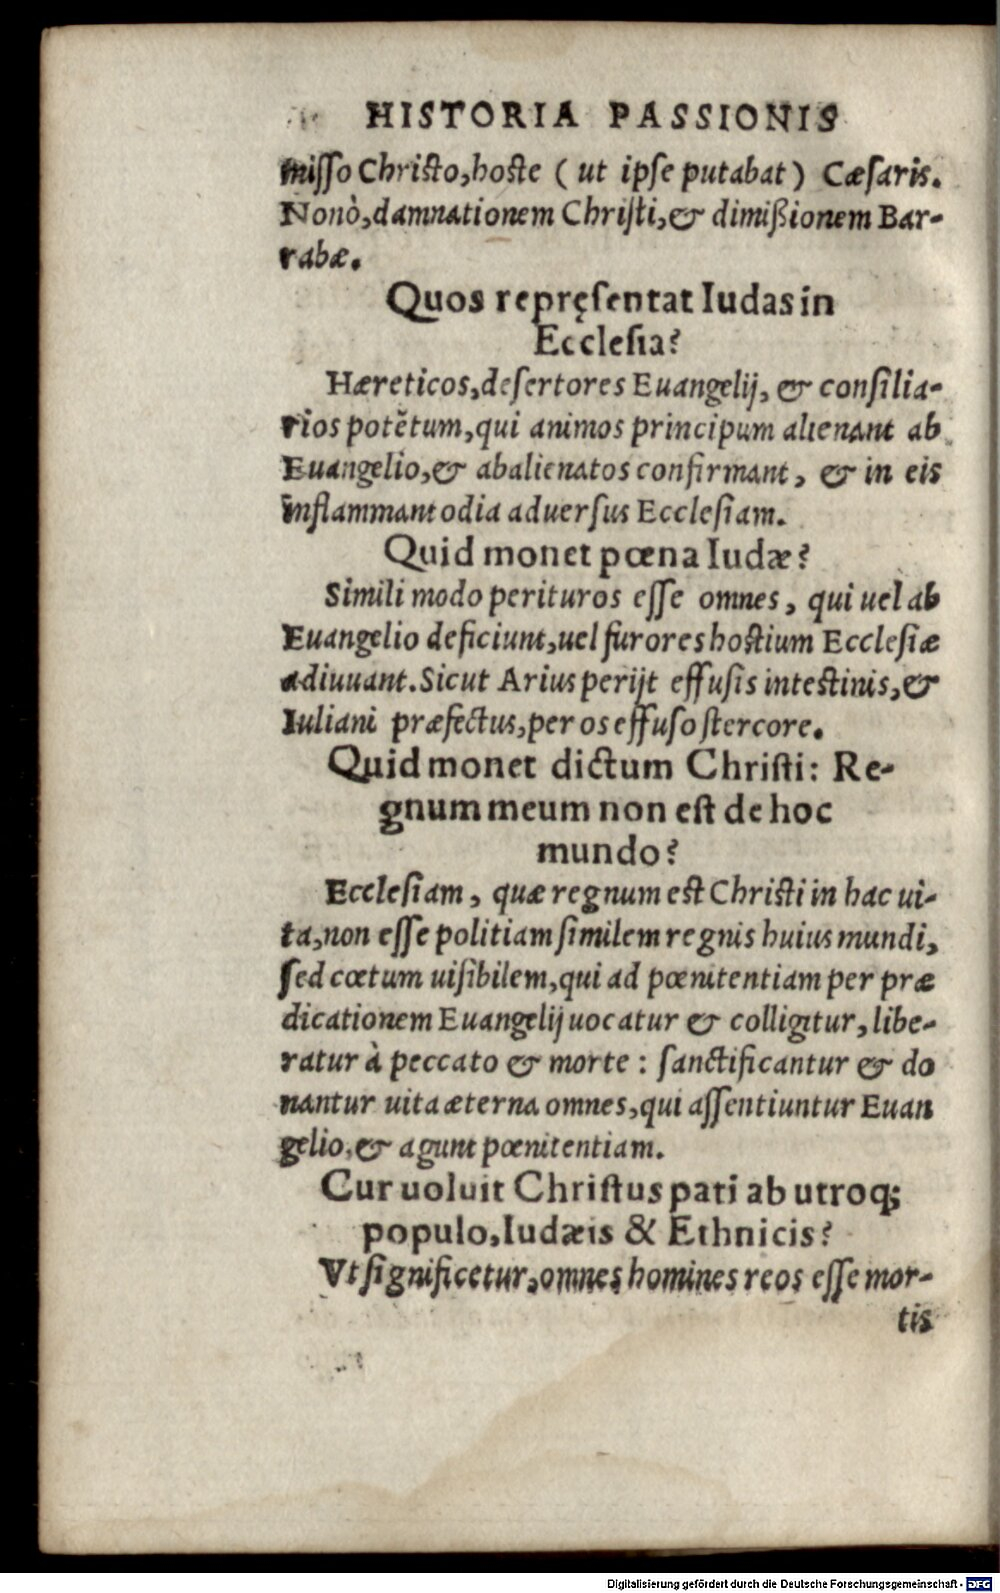 HISTORIA PASSIONIS
misso Christo, hoste ( ut ipse putabat ) Cæsaris.
Nonò, damnationem Christi, & dimißionem Bar-
rabæ.
Quos repręsentat Iudas in
Ecclesia?
Hæreticos, desertores Euangelij, & consilia-
rios potẽtum, qui animos principum alienant ab
Euangelio, & abalienatos confirmant, & in eis
inflammant odia aduersus Ecclesiam.
Quid monet pœna Iudæ?
Simili modo perituros esse omnes, qui uel ab
Euangelio deficiunt, uel furores hostium Ecclesiæ
adiuuant. Sicut Arius perijt effusis intestinis, &
Iuliani præfectus, per os effuso stercore.
Quid monet dictum Christi: Re-
gnum meum non est de hoc
mundo?
Ecclesiam, quæ regnum est Christi in hac ui-
ta, non esse politiam similem regnis huius mundi,
sed cœtum uisibilem, qui ad pœnitentiam per præ
dicationem Euangelij uocatur & colligitur, libe-
ratur à peccato & morte : sanctificantur & do
nantur uita æterna omnes, qui assentiuntur Euan
gelio, & agunt pœnitentiam.
Cur uoluit Christus pati ab utroq;
populo, Iudæis & Ethnicis?
Vt significetur, omnes homines reos esse mor-
tis
Digitalisierung gefördert durch die Deutsche Forschungsgemeinschaft - DFG